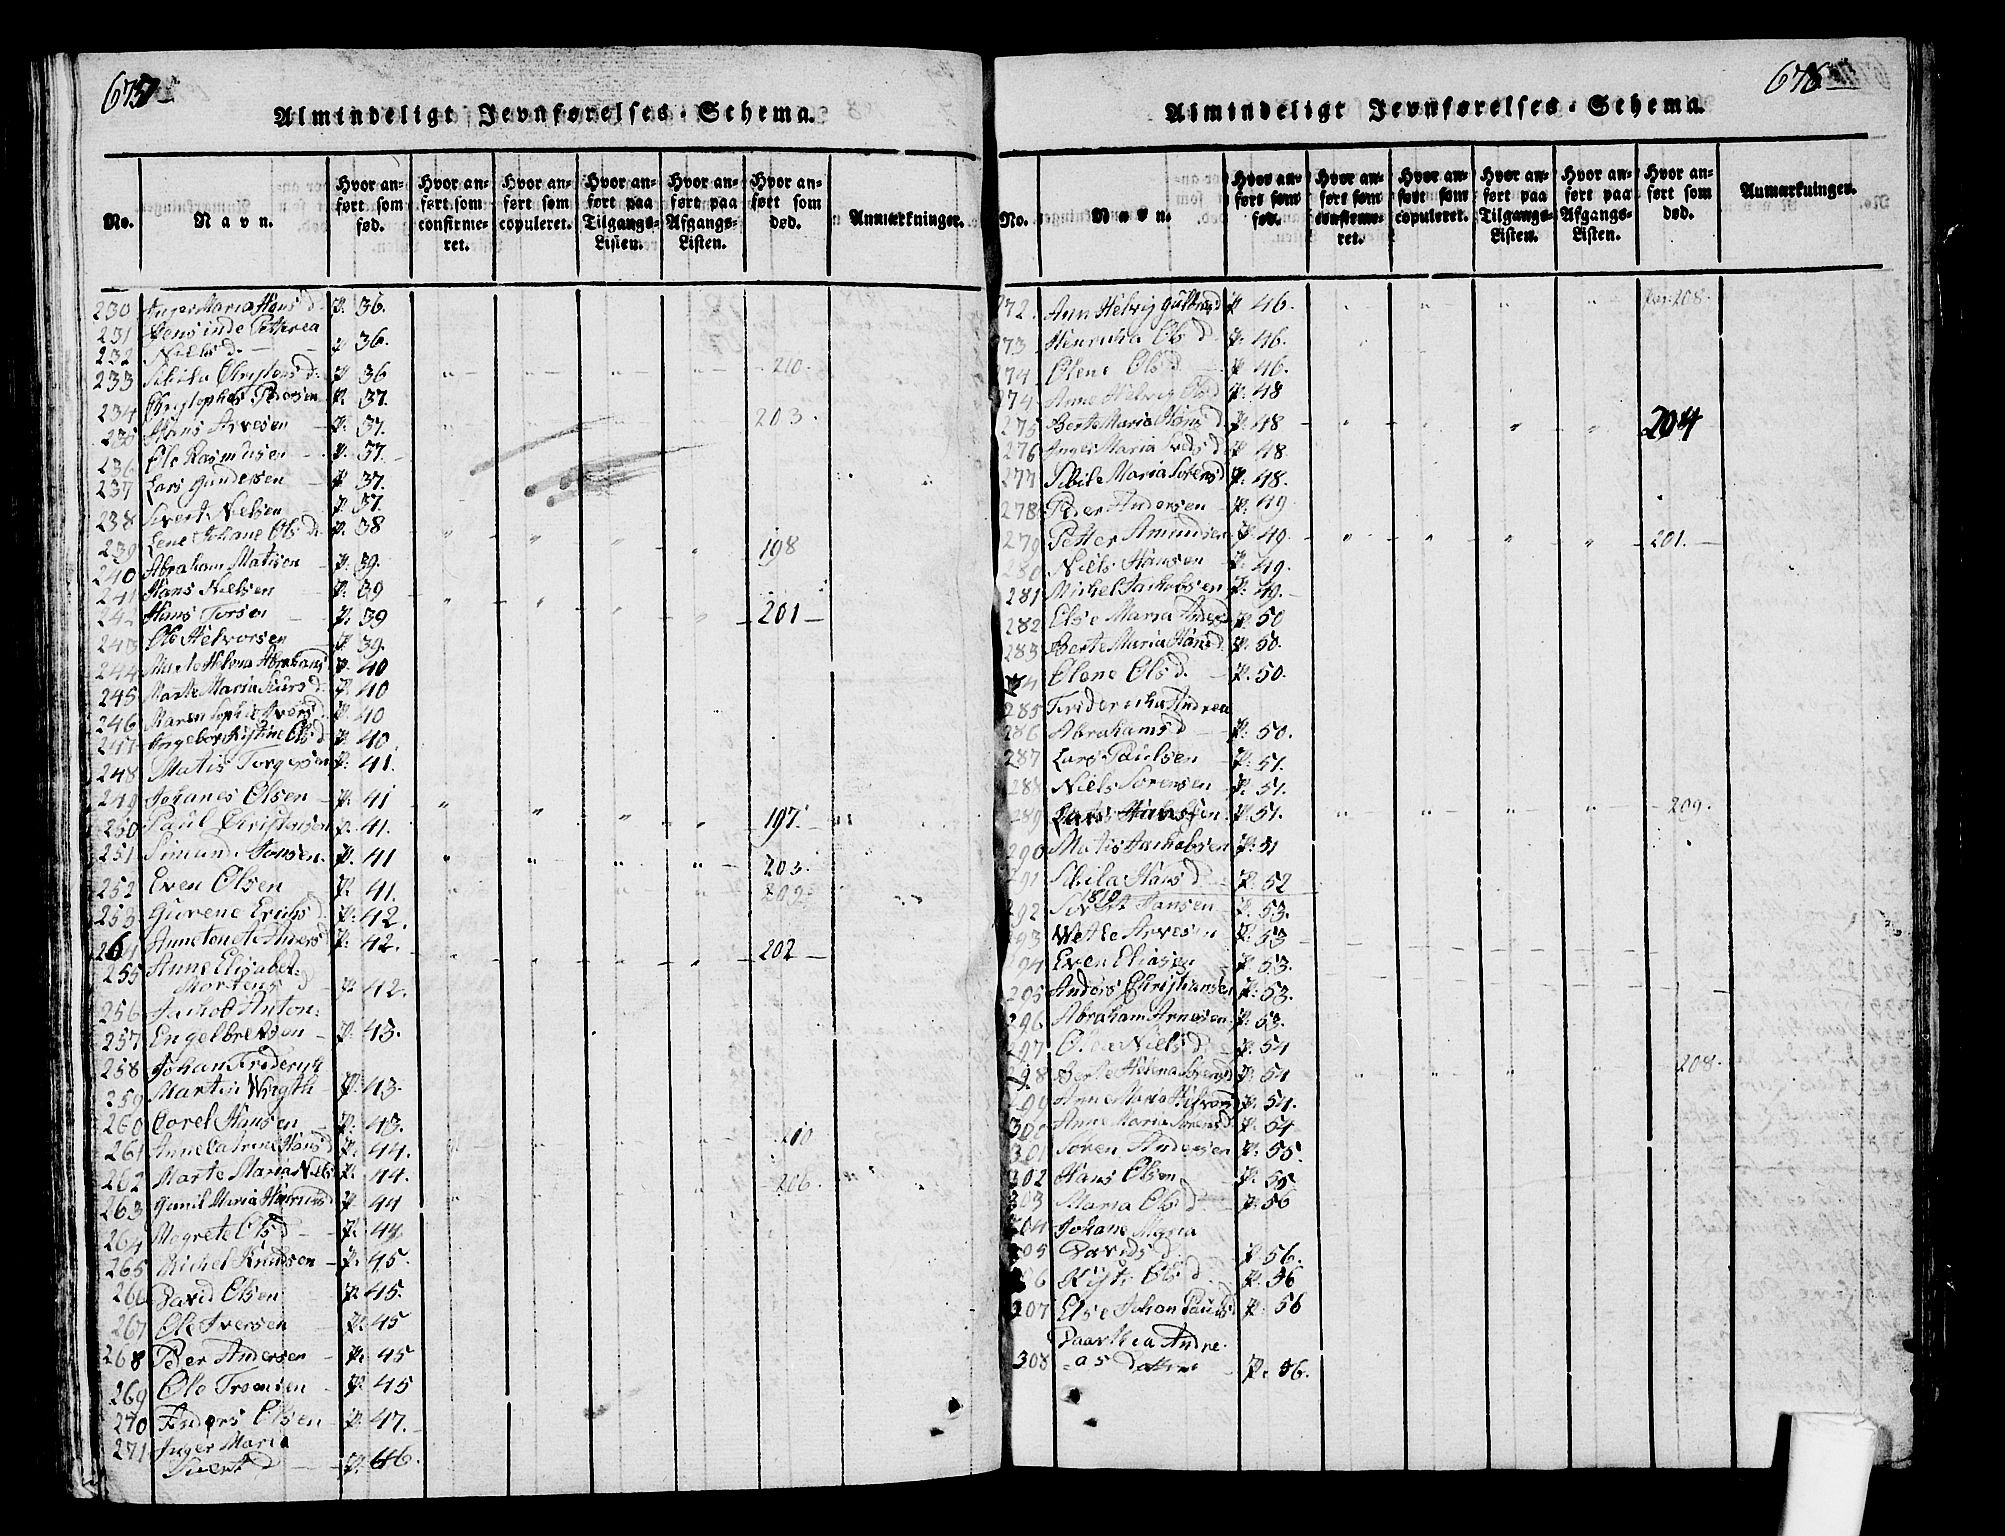 675
Almindeligt Jevnførelses-Schema.
No.
Navn.
Hvor anført som fød.
Hvor anført som confirmeret.
Hvor anført som copuleret.
Hvor anført paa Tilgangs-Listen.
Hvor anført paa Afgangs-Listen.
Hvor anført som død.
Anmærkninger.
230 Inger Maria Hans d. P. 36.
231 Jensinde Petterea
232 Niels d. P. 36.
233 Sibila Christens d. P. 36 210.
234 Christopher Pedersen P. 37.
235 Hans Arvesen P. 37. 203.
236 Ole Rasmusen P. 37.
237 Lars Gundersen P. 37.
238 Sivert Nielsen P. 37.
239 Lene Johane Ols d. P. 38 198
240 Abraham Matisen P. 39.
241 Hans Nielsen P. 39
Hans Torsen P. 39 201
243 Ole Helvorsen P. 39.
244 Helena Abrahams P. 40
245 Marte Maria Siurs d. P. 40
246 Maren Sophie Ivers d. P. 40
247 Ingebor Kistine Ols d P. 40.
248 Matis Torgersen P. 41.
249 Johanes Olsen P. 41
250 Paul Christensen P. 41. 197.
251 Simund Jonsen P. 41 203.
252 Even Olsen P. 41. 209
253 Gurene Erichs d. P. 42.
Anne Anders d P. 42. 202
255 Anne Elisabet
Mortens d P. 42.
256 Jachob Anton
257 Engelbretsen P. 43.
258 Johan Friderich
259 Martin P. 43.
260 Corel Hansen P. 43.
261 Anne Catrine Hans d P. 44. 210
262 Marte Maria Niels P. 44.
263 Maria P. 44 206.
264 Magrete Ols d P. 44.
265 Michel Knudsen P. 45.
266 David Olsen P. 45.
267 Ole Iversen P. 45
268 Peder Andersen P. 45
269 Ole P. 45
270 Anders Olsen P. 47.
271 Inger Maria
Sivert d P. 46.
678
Almindeligt Jevnførelses-Schema.
No.
Navn.
Hvor anført som fød.
Hvor anført som confirmeret.
Hvor anført som copuleret.
Hvor anført paa Tilgangs-Listen.
Hvor anført paa Afgangs-Listen.
Hvor anført som død.
Anmærkninger.
272. Ann Helvig P. 46. 208.
273 Henricha Ols d. P. 46.
274 Olene Ols d P. 46.
274 Anne Helvig Ols d P. 48
275 Berte Maria Hans d P. 48 204
276 Inger Maria d P. 48.
277 Sibile Maria Sørens d P. 48.
278 Peder Andersen P. 49
279 Petter Amundsen P. 49. 201.
280 Niels Hansen P. 49.
281 Michel Jachobsen P. 49.
282 Else Maria Anders P. 50
283 Berte Maria Hans d. P. 50.
Olene Ols d. P. 50.
285 Fridericha Andrea
286 Abrahams d P. 50.
287 Lars Paulsen P. 51.
288 Niels Sørensen P. 51.
289 Lars Hansen P. 51. 209.
290 Matis Jachobsen P. 51
291 Sibila Hans d. P. 52
1819
292 Sivert Hansen P. 53.
293 Wetle Arvesen P. 53
294 Even Eliasen P. 53.
295 Anders Christiansen P. 53.
296 Abraham Arnesen P. 53.
297 Niels d P. 54
298 Berte Helena Sørens d P. 54 208.
299 Anne Maria P. 54.
300 Anne Maria Sørens d P. 54
301 Søren Andersen P. 55.
302 Hans Olsen P. 55
303 Maria Ols d. P. 56
304 Johane Maria
305 Davids d. P. 56.
306 Ols d. P. 56
307 Else Johan Pauls d P. 56
Andre
308 -as datter P. 56.